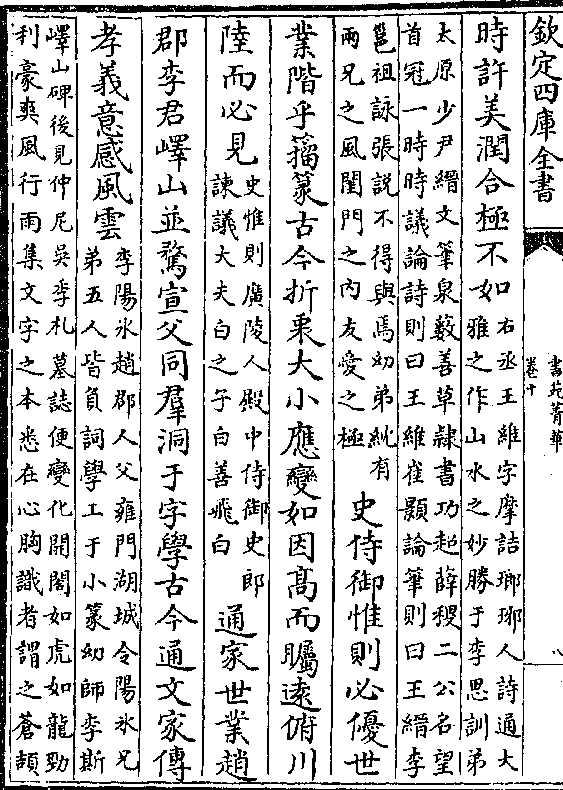 欽定四庫全書
書苑菁華
卷十
八
時許美潤合極不如
右丞王維字摩詰瑯琊人詩通大
雅之作山水之妙勝于李思訓弟
太原少尹縉文筆泉藪善草隸書功超薛稷二公名望
首冠一時時議論詩則曰王維崔顥論筆則曰王縉李
邕祖詠張說不得與焉幼弟紞有
兩兄之風閨門之內友愛之極
史侍御惟則必優世
業階乎籀篆古今折衷大小應變如因高而矚遠俯川
陸而必見
史惟則廣陵人殿中侍御史郎
諫議大夫白之子白善飛白
通家世業趙
郡李君嶧山並騖宣父同羣洞于字學古今通文家傳
孝義意感風雲
李陽冰趙郡人父雍門湖城令陽冰兄
弟五人皆負詞學工于小篆幼師李斯
嶧山碑後見仲尼吳季札墓誌便變化開闔如虎如龍勁
利豪爽風行雨集文字之本悉在心胸識者謂之蒼頡